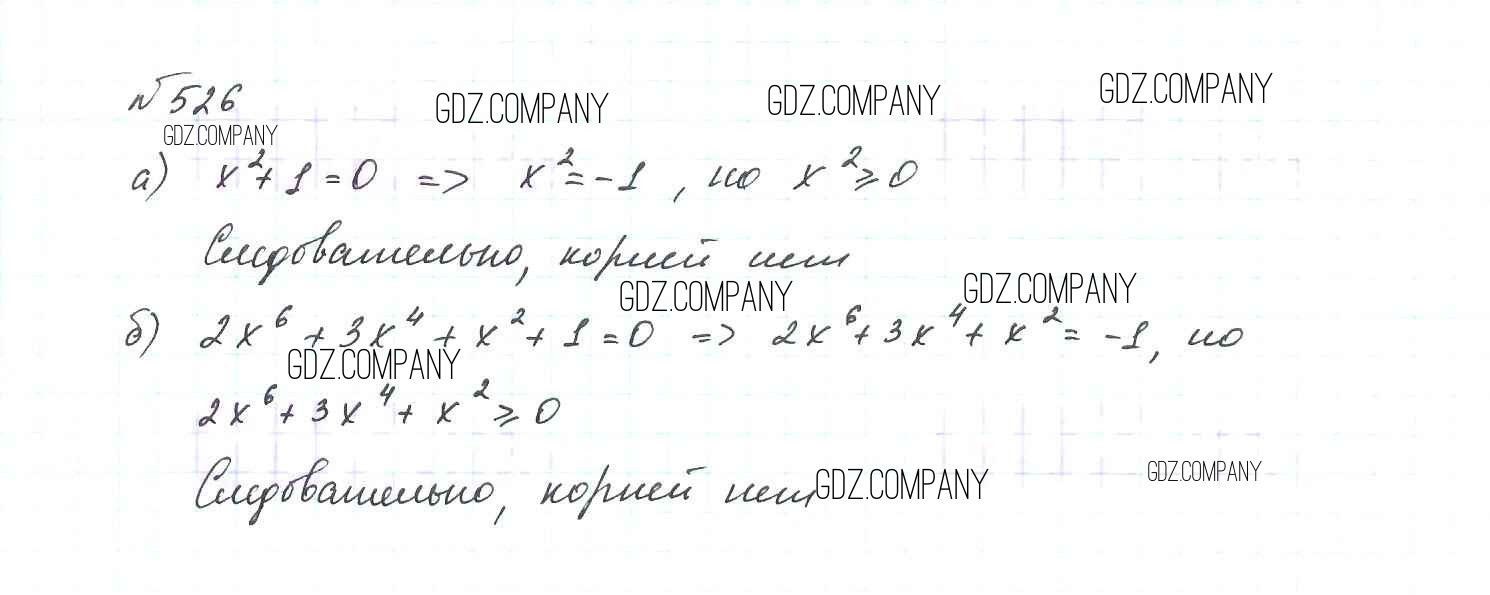 № 526
GDZ.COMPANY GDZ.COMPANY GDZ.COMPANY
GDZ.COMPANY
а) x² + 1 = 0 => x² = -1, но x² ≥ 0
Следовательно, корней нет
GDZ.COMPANY GDZ.COMPANY
б) 2x⁶ + 3x⁴ + x² + 1 = 0 => 2x⁶ + 3x⁴ + x² = -1, но
GDZ.COMPANY
2x⁶ + 3x⁴ + x² ≥ 0
Следовательно, корней нет GDZ.COMPANY GDZ.COMPANY